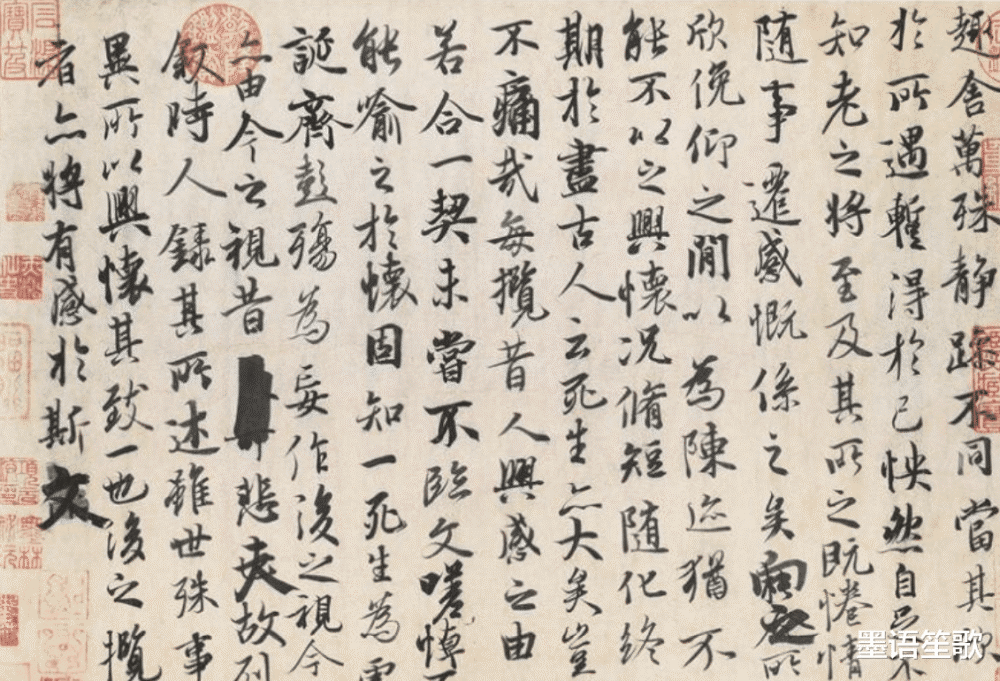 趣舍萬殊静躁不同當其欣
於所遇暫得於己怏然自足不
知老之將至及其所之既惓情
随事遷感慨係之矣向之所
欣俛仰之閒以為陳迹猶不
能不以之興懷況脩短随化終
期於盡古人云死生亦大矣豈
不痛哉每攬昔人興感之由
若合一契未嘗不臨文嗟悼不
能喻之於懷固知一死生為虛
誕齊彭殤為妄作後之視今
亦由今之視昔悲夫故列
叙時人録其所述雖世殊事
異所以興懷其致一也後之攬
者亦將有感於斯文
墨语笙歌